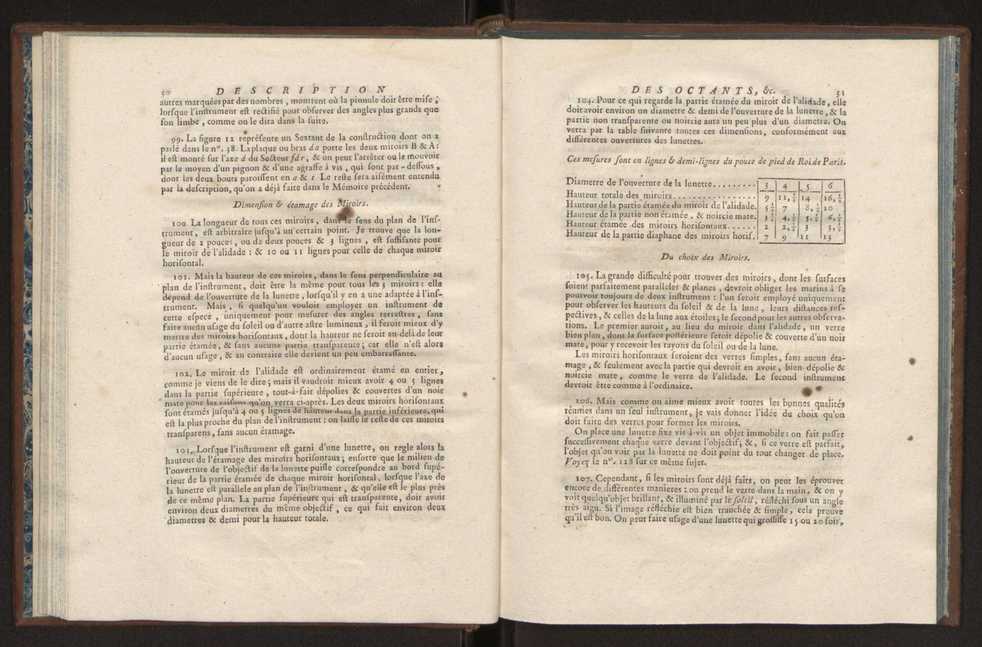 50 DESCRIPTION
autres marquées par des nombres, montrent où la pinnule doit être mise,
lorsque l'instrument est rectifié pour observer des angles plus grands que
son limbe, comme on le dira dans la suite.
99. La figure 12 représente un Sextant de la construction dont on a
parlé dans le n°. 58. La plaque ou bras da porte les deux miroirs B & A:
il est monté sur l'axe d du Secteur fdr, & on peut l'arrêter ou le mouvoir
par le moyen d'un pignon & d'une agraffe à vis, qui sont par-dessous,
dont les deux bouts paroissent en a & t. Le reste sera aisément entendu
par la description, qu'on a déjà faite dans le Mémoire précédent.
Dimension & étamage des Miroirs.
100. La longueur de tous ces miroirs, dans le sens du plan de l'ins-
trument, est arbitraire jusqu'à un certain point. Je trouve que la lon-
gueur de 2 pouces, ou de deux pouces & 3 lignes, est suffisante pour
le miroir de l'alidade: & 10 ou 11 lignes pour celle de chaque miroir
horisontal.
101. Mais la hauteur de ces miroirs, dans le sens perpendiculaire au
plan de l'instrument, doit être la même pour tous les 3 miroirs: elle
dépend de l'ouverture de la lunette, lorsqu'il y en a une adaptée à l'ins-
trument. Mais, si quelqu'un vouloit employer un instrument de
cette espece, uniquement pour mesurer des angles terrestres, sans
faire aucun usage du soleil ou d'autre astre lumineux, il feroit mieux d'y
mettre des miroirs horisontaux, dont la hauteur ne seroit au-delà de leur
partie étamée, & sans aucune partie transparente; car elle n'est alors
d'aucun usage, & au contraire elle devient un peu embarrassante.
102. Le miroir de l'alidade est ordinairement étamé en entier,
comme je viens de le dire; mais il vaudroit mieux avoir 4 ou 5 lignes
dans la partie supérieure, tout-à-fait dépolies & couvertes d'un noir
mate pour les raisons qu'on verra ci-après. Les deux miroirs horisontaux
sont étamés jusqu'à 4 ou 5 lignes de hauteur dans la partie inférieure, qui
est la plus proche du plan de l'instrument: on laisse le reste de ces miroirs
transparens, sans aucun étamage.
103. Lorsque l'instrument est garni d'une lunette, on regle alors la
hauteur de l'étamage des miroirs horisontaux; ensorte que le milieu de
l'ouverture de l'objectif de la lunette puisse correspondre au bord supé-
rieur de la partie étamée de chaque miroir horisontal, lorsque l'axe de
la lunette est parallele au plan de l'instrument, & qu'elle est le plus près
de ce même plan. La partie supérieure qui est transparente, doit avoir
environ deux diametres du même objectif, ce qui fait environ deux
diametres & demi pour la hauteur totale.
DES OCTANTS, &c. 51
104. Pour ce qui regarde la partie étamée du miroir de l'alidade, elle
doit avoir environ un diametre & demi de l'ouverture de la lunette, & la
partie non transparente ou noircie aura un peu plus d'un diametre. On
verra par la table suivante toutes ces dimensions, conformément aux
différentes ouvertures des lunettes.
Ces mesures sont en lignes & demi-lignes du pouce de pied de Roi de Paris.
Diametre de l'ouverture de la lunette......... 3 4 5 6
Hauteur totale des miroirs............... 9 11,½ 14 16,½
Hauteur de la partie étamée du miroir de l'alidade. 5½ 7 8,½ 10
Hauteur de la partie non étamée, & noircie mate. 3½ 4,½ 5,½ 6,½
Hauteur étamée des miroirs horisontaux...... 2 2,½ 3 3,½
Hauteur de la partie diaphane des miroirs horis. 7 9 11 13
Du choix des Miroirs.
105. La grande difficulté pour trouver des miroirs, dont les surfaces
soient parfaitement paralleles & planes, devroit obliger les marins à se
pourvoir toujours de deux instrument: l'un seroit employé uniquement
pour observer les hauteurs du soleil & de la lune, leurs distances res-
pectives, & celles de la lune aux étoiles; le second pour les autres observa-
tions. Le premier auroit, au lieu du miroir dans l'alidade, un verre
bien plan, dont la surface postérieure seroit dépolie & couverte d'un noir
mate, pour y recevoir les rayons du soleil ou de la lune.
Les miroirs horisontaux seroient des verres simples, sans aucun éta-
mage, & seulement avec la partie qui devroit en avoir, bien dépolie &
noircie mate, comme le verre de l'alidade. Le second instrument
devroit être comme à l'ordinaire.
106. Mais comme on aime mieux avoir toutes les bonnes qualités
réunies dans un seul instrument, je vais donner l'idée du choix qu'on
doit faire des verres pour former les miroirs.
On place une lunette fixe vis-à-vis un objet immobile: on fait passer
successivement chaque verre devant l'objectif; &, si ce verre est parfait,
l'objet qu'on voit par la lunette ne doit point du tout changer de place.
Voyez le n°. 128 sur ce même sujet.
107. Cependant, si les miroirs sont déjà faits, on peut les éprouver
encore de différentes manieres: on prend le verre dans la main, & on y
voit quelqu'objet brillant, & illuminé par le soleil, réfléchi sous un angle
très aigu. Si l'image réfléchie est bien tranchée & simple, cela prouve
qu'il est bon. On peut faire usage d'une lunette qui grossisse 15 ou 20 fois,